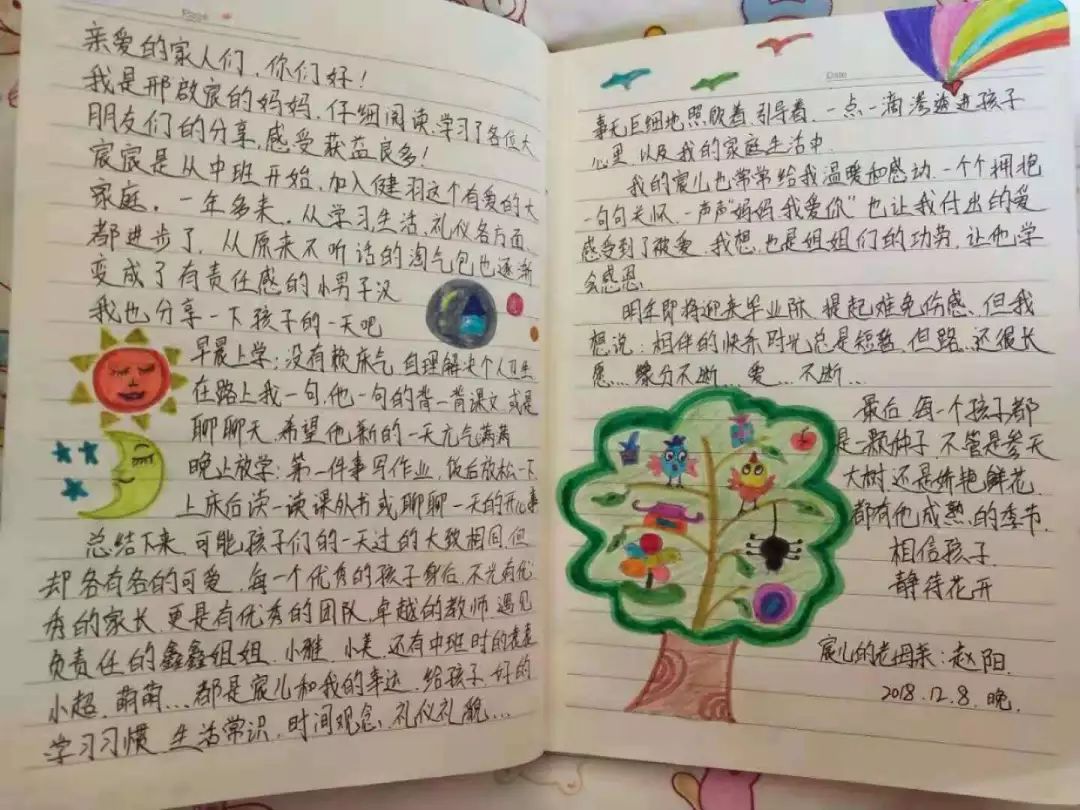 亲爱的家人们，你们好！
我是邢啟宸的妈妈，仔细阅读、学习了各位大
朋友们的分享，感受获益良多！
宸宸是从中班开始，加入健羽这个有爱的大
家庭。一年多来，从学习、生活、礼仪各方面
都进步了，从原来不听话的淘气包也逐渐
变成了有责任感的小男子汉
我也分享一下孩子的一天吧
早晨上学：没有赖床气，自理解决个人卫生
在路上我一句，他一句的背一背课文或是
聊聊天，希望他新的一天元气满满
晚上放学：第一件事写作业，饭后放松一下
上床后读一读课外书或聊聊一天的开心事
总结下来，可能孩子们的一天过的大致相同，但
却各有各的可爱，每一个优秀的孩子身后，不光有优
秀的家长，更是有优秀的团队，卓越的教师，遇见
负责任的鑫鑫姐姐、小雅、小美，还有中班时的袁袁
小超、萌萌...都是宸儿和我的幸运，给孩子好的
学习习惯、生活常识、时间观念、礼仪礼貌...
Date
事无巨细地照顾着，引导着，一点一滴渗透进孩子
心里，以及我的家庭生活中。
我的宸儿也常常给我温暖和感动，一个个拥抱
一句句关怀，一声声“妈妈，我爱你”也让我付出的爱
感受到了被爱，我想，也是姐姐们的功劳，让他学
会感恩。
明年即将迎来毕业际，提起难免伤感，但我
想说：相伴的快乐时光总是短暂，但路...还很长
愿...缘分不断...爱...不断...
最后，每一个孩子都
是一颗种子，不管是参天
大树还是娇艳鲜花，
都有他成熟的季节，
相信孩子
静待花开
宸儿的老母亲：赵阳
2018.12.8.晚.